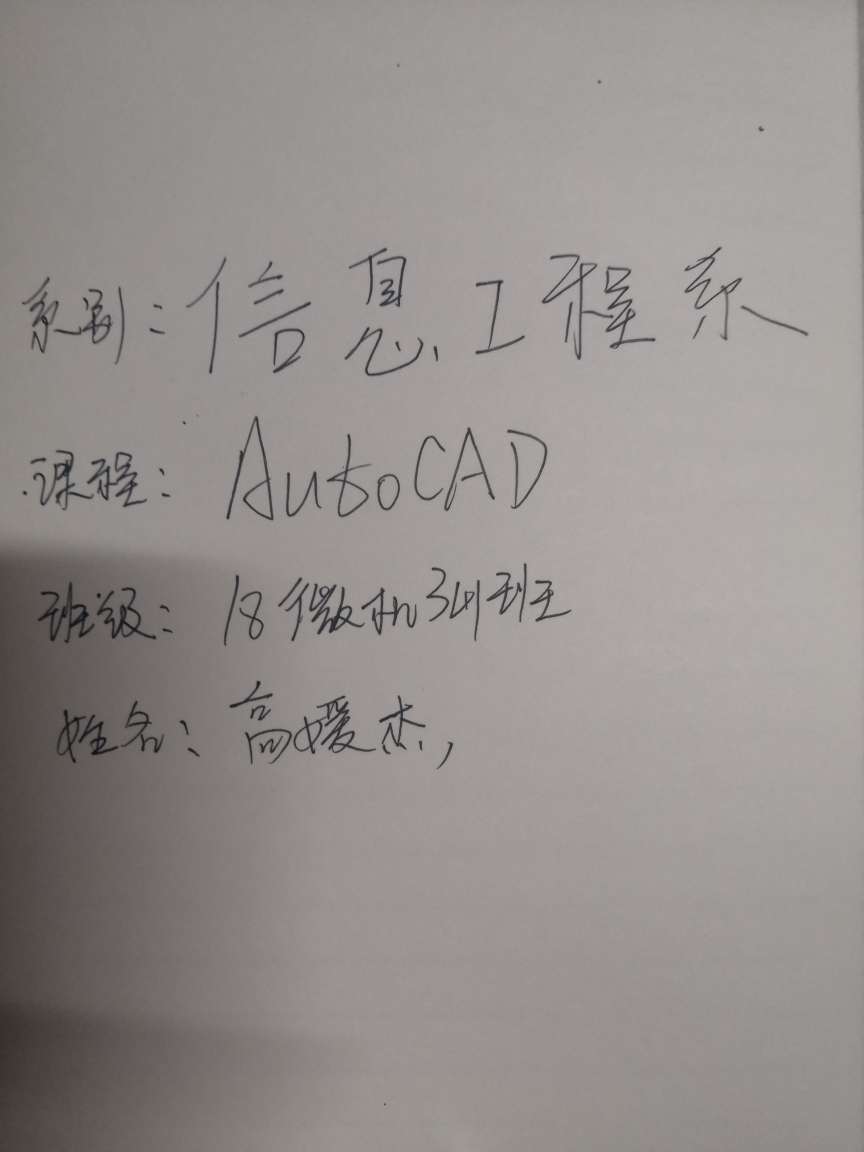 系别：信息工程系
课程：AutoCAD
班级：18微机341班
姓名：高媛杰，